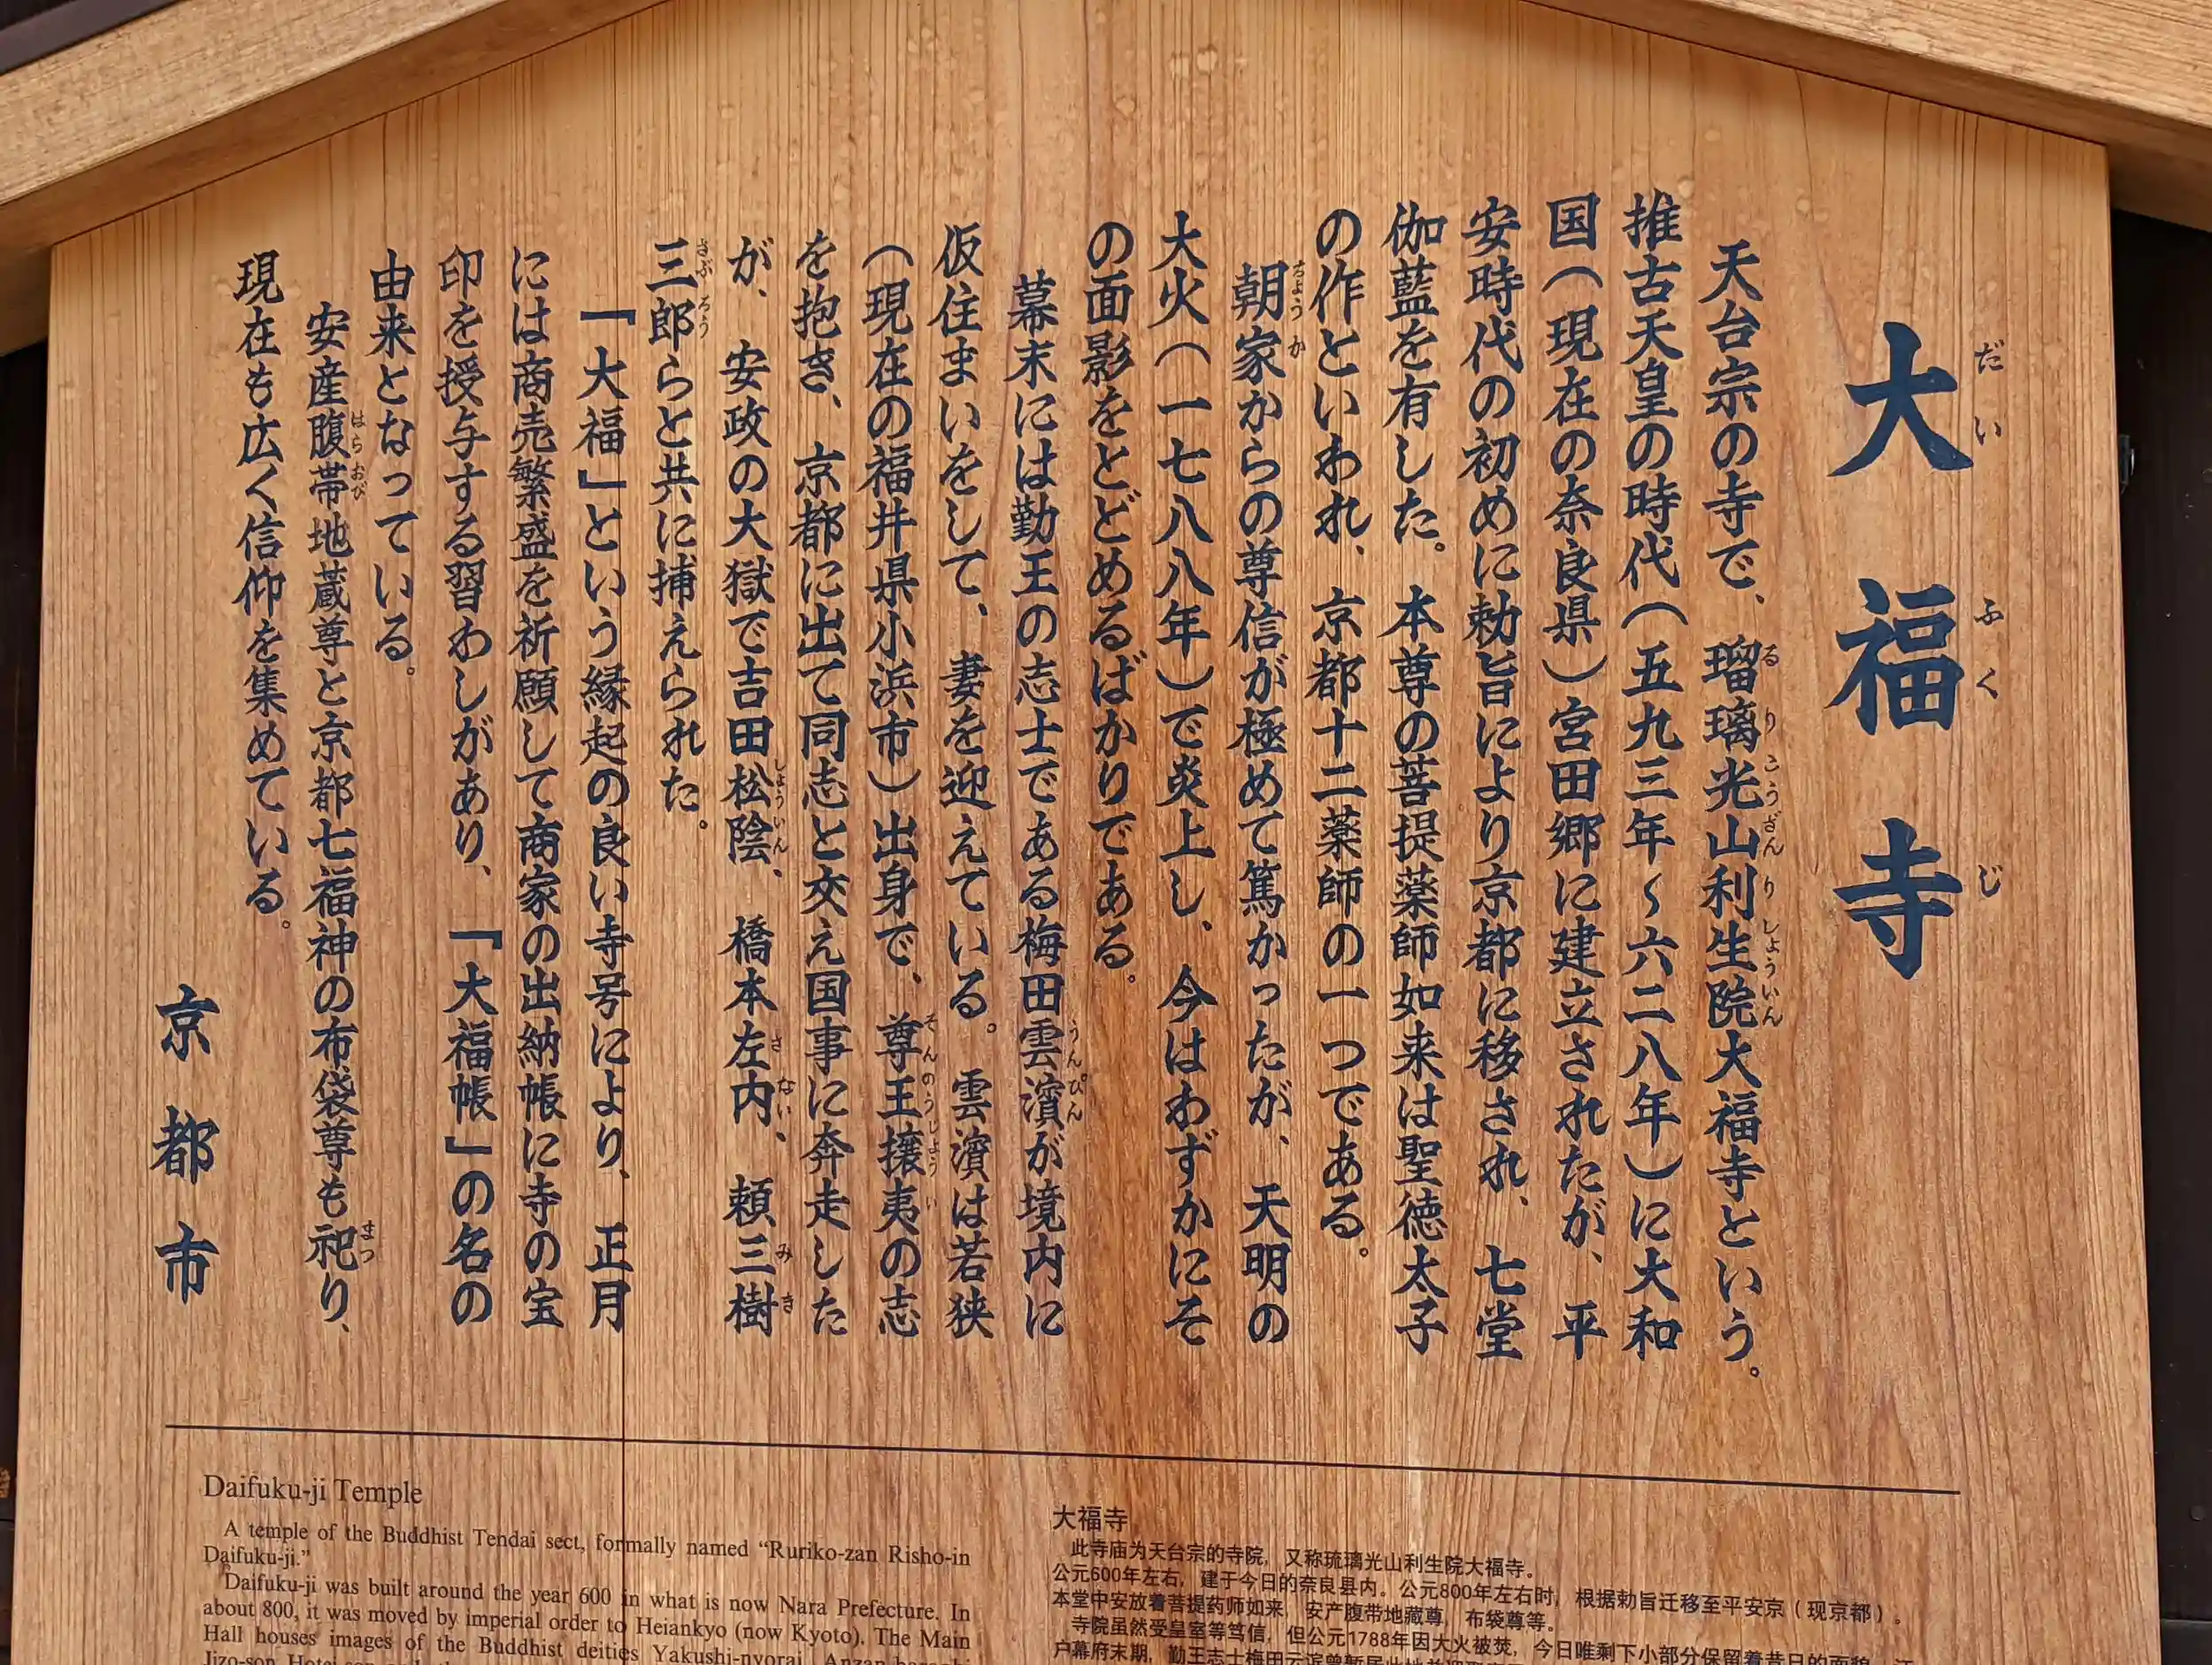 大福寺
だいふくじ
天台宗の寺で、瑠璃光山利生院大福寺という。
るりこうざんりしょういん
推古天皇の時代（五九三年～六二八年）に大和
国（現在の奈良県）宮田郷に建立されたが、平
安時代の初めに勅旨により京都に移され、七堂
伽藍を有した。本尊の菩提薬師如来は聖徳太子
の作といわれ、京都十二薬師の一つである。
朝家からの尊信が極めて篤かったが、天明の
ちょうか
大火（一七八八年）で炎上し、今はわずかにそ
の面影をとどめるばかりである。
幕末には勤王の志士である梅田雲濱が境内に
うんぴん
仮住まいをして、妻を迎えている。雲濱は若狭
（現在の福井県小浜市）出身で、尊王攘夷の志
そんのうじょうい
を抱き、京都に出て同志と交え国事に奔走した
が、安政の大獄で吉田松陰、橋本左内、頼三樹
しょういん さない みき
三郎らと共に捕えられた。
さぶろう
「大福」という縁起の良い寺号により、正月
には商売繁盛を祈願して商家の出納帳に寺の宝
印を授与する習わしがあり、「大福帳」の名の
由来となっている。
安産腹帯地蔵尊と京都七福神の布袋尊も祀り、
はらおび まつ
現在も広く信仰を集めている。
京都市
Daifuku-ji Temple
A temple of the Buddhist Tendai sect, formally named “Ruriko-zan Risho-in
Daifuku-ji.”
Daifuku-ji was built around the year 600 in what is now Nara Prefecture. In
about 800, it was moved by imperial order to Heiankyo (now Kyoto). The Main
Hall houses images of the Buddhist deities Yakushi-nyorai, Anzan
Jizo-son, Hotei-son
大福寺
此寺庙为天台宗的寺院，又称琉璃光山利生院大福寺。
公元600年左右，建于今日的奈良县内。公元800年左右时，根据勅旨迁移至平安京（现京都）。
本堂中安放着菩提药师如来，安产腹带地藏尊，布袋尊等。
寺院虽然受皇室等笃信，但公元1788年因大火被焚，今日唯剩下小部分保留着昔日的面貌。
户幕府末期，勤王志士梅田云滨曾暂居此地